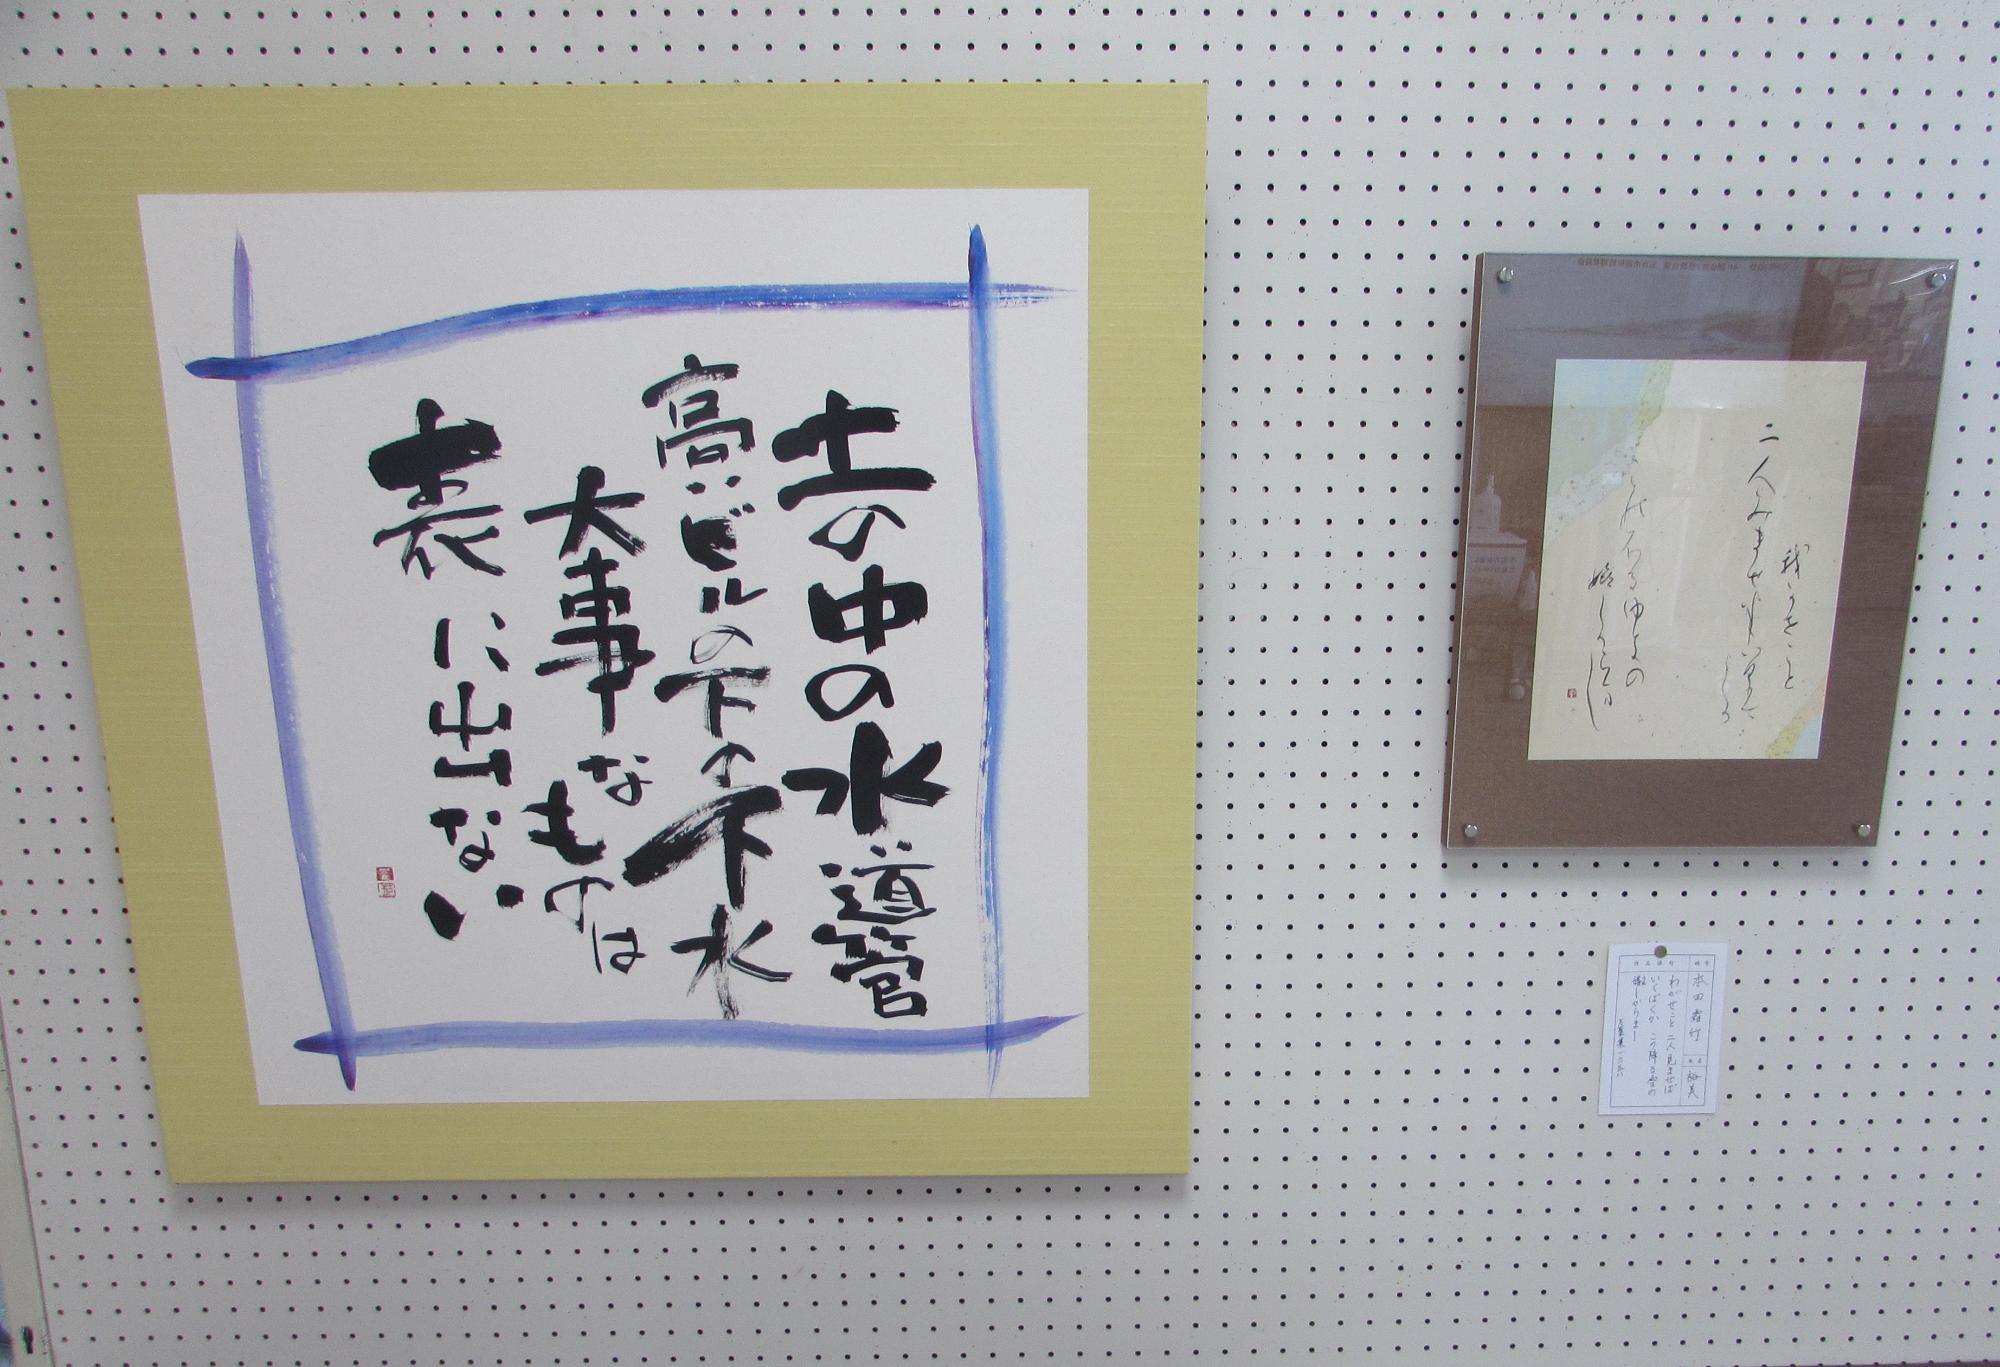 土の中の水道管
高いビルの下の下水
大事なものは
表に出ない
我かせこと
二人みませば
嬉しからまし
本田 裕美
わがせこと 二人見ませば
いくばくか この降る雪の
嬉しからまし
万葉集 一六五八